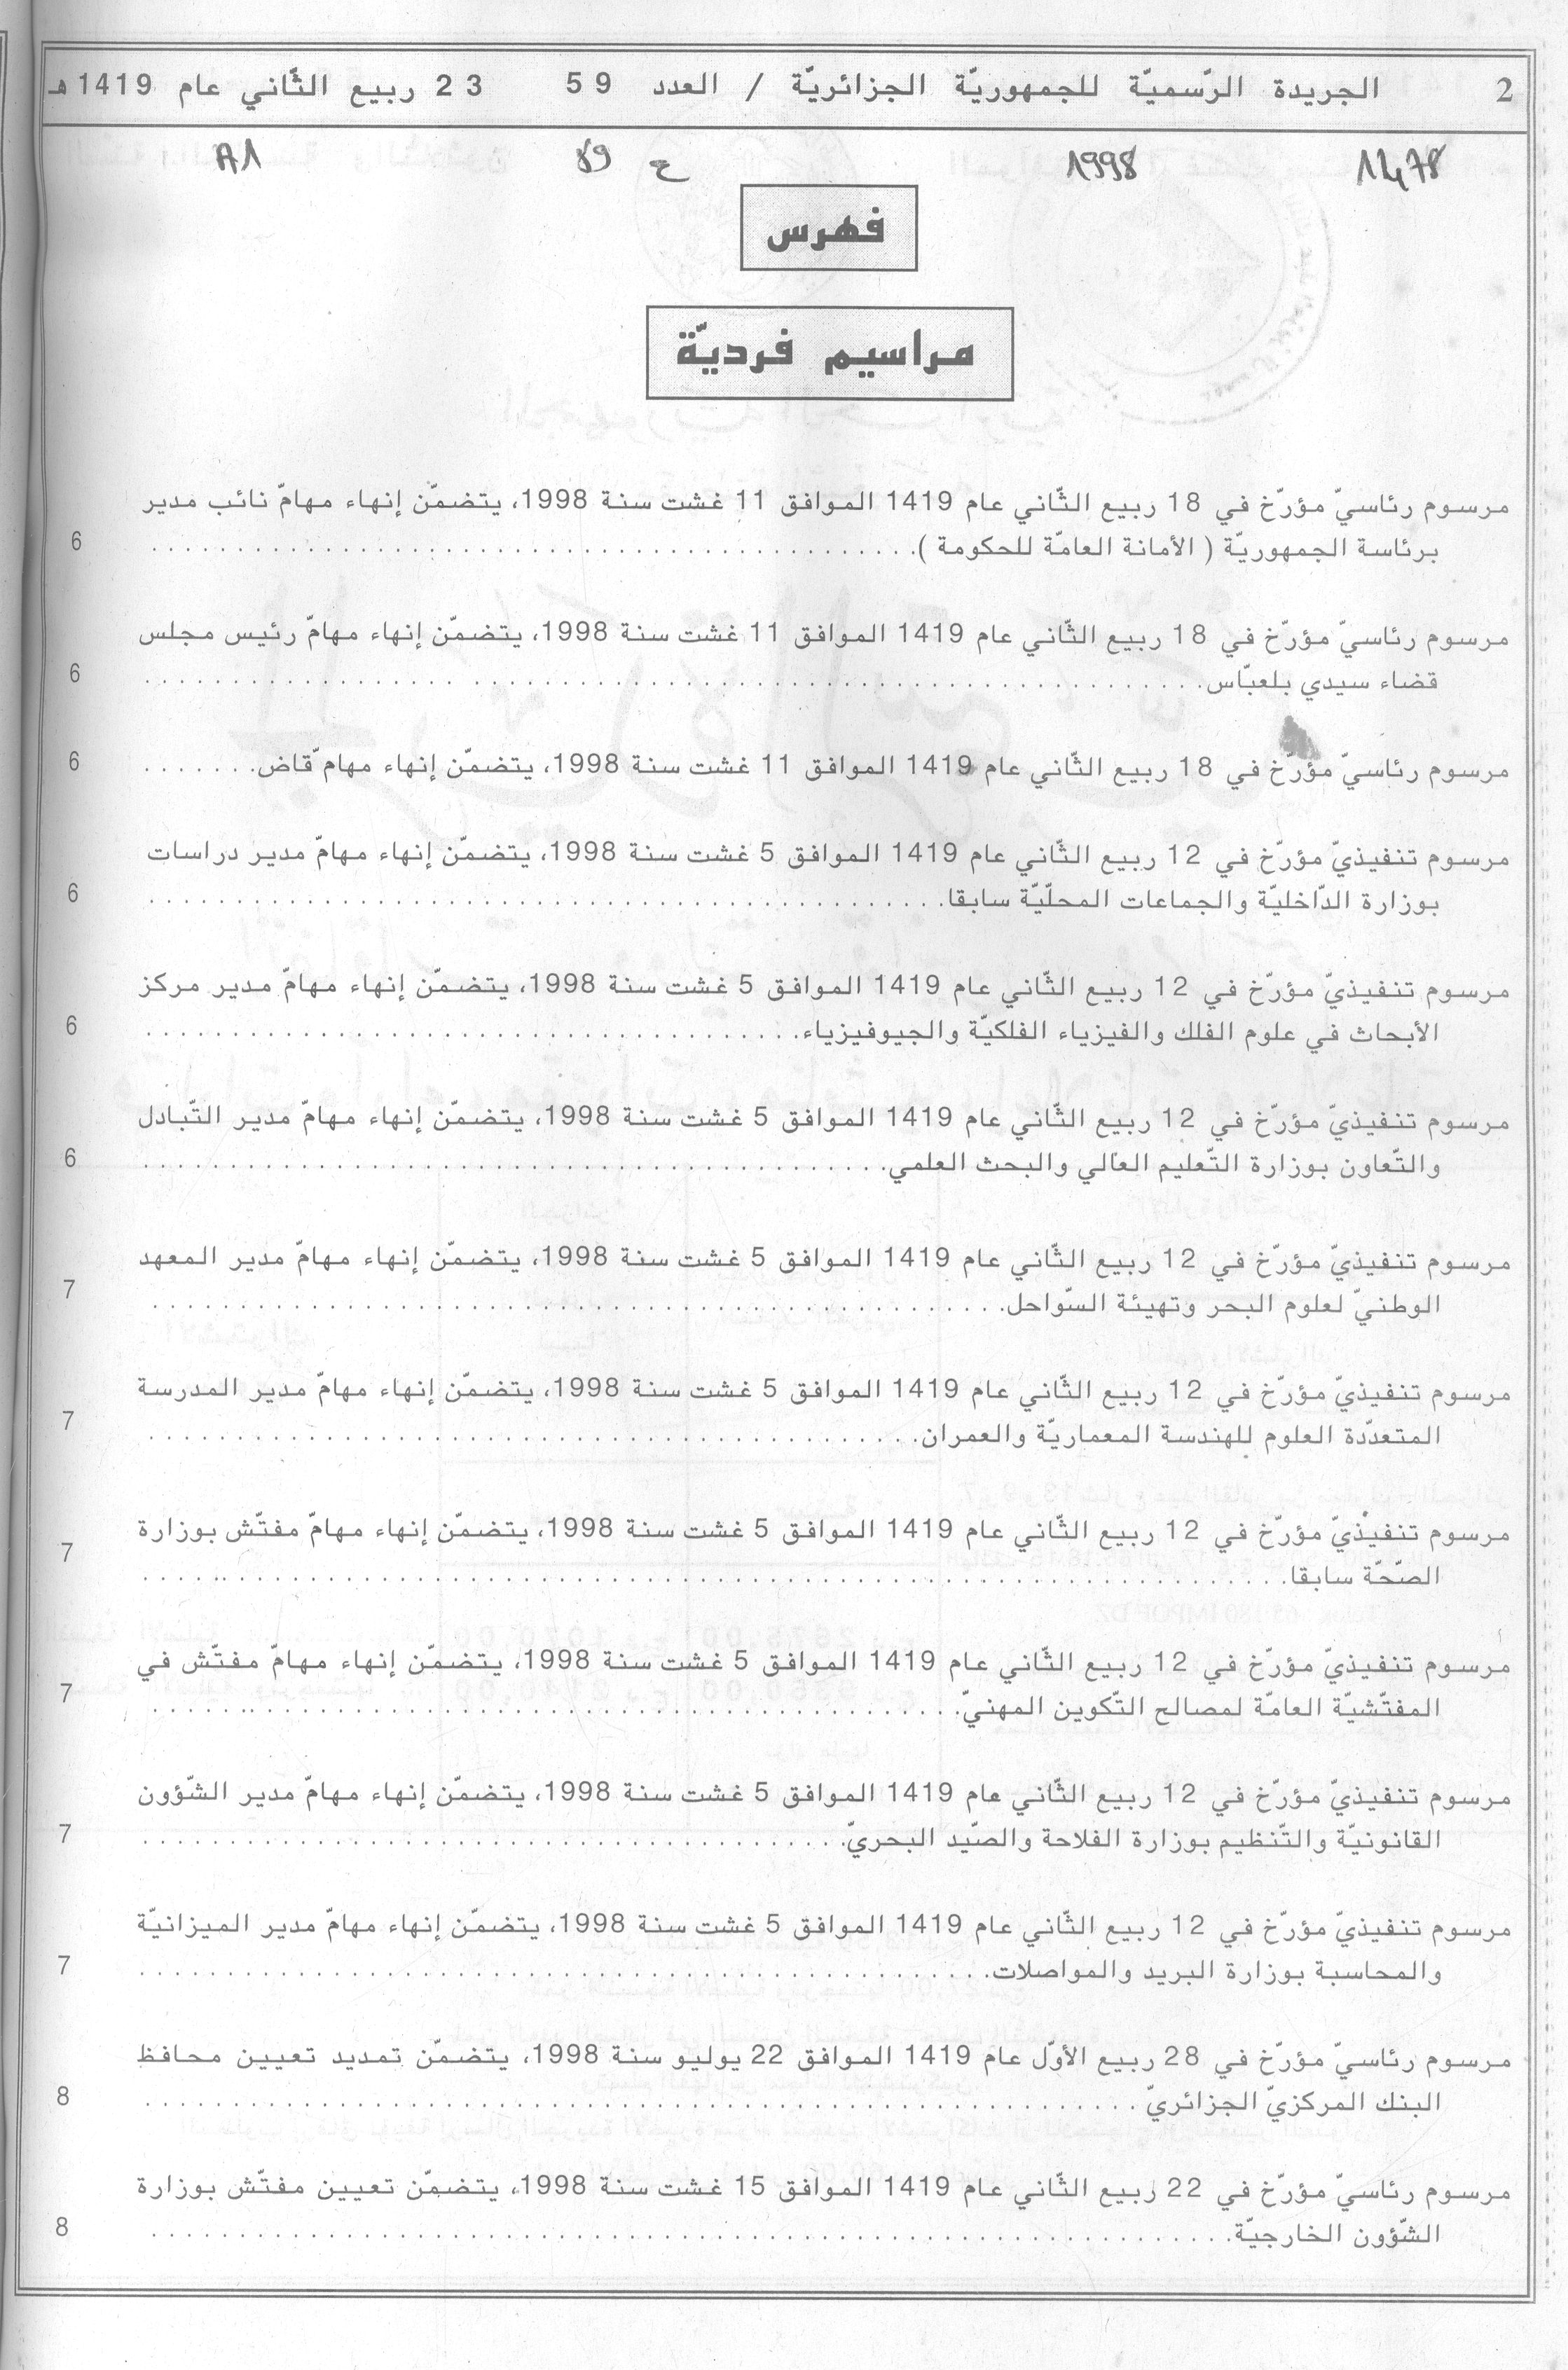 2 الجريدة الرّسميّة للجمهوريّة الجزائريّة / العدد 59 23 ربيع الثّاني عام 1419 هـ
1998 ع 59 A1
فهرس
مراسيم فرديّة
مرسوم رئاسيّ مؤرّخ في 18 ربيع الثّاني عام 1419 الموافق 11 غشت سنة 1998، يتضمّن إنهاء مهامّ نائب مدير
برئاسة الجمهوريّة ( الأمانة العامّة للحكومة ). 6
مرسوم رئاسيّ مؤرّخ في 18 ربيع الثّاني عام 1419 الموافق 11 غشت سنة 1998، يتضمّن إنهاء مهامّ رئيس مجلس
قضاء سيدي بلعبّاس. 6
مرسوم رئاسيّ مؤرّخ في 18 ربيع الثّاني عام 1419 الموافق 11 غشت سنة 1998، يتضمّن إنهاء مهامّ قاض. 6
مرسوم تنفيذيّ مؤرّخ في 12 ربيع الثّاني عام 1419 الموافق 5 غشت سنة 1998، يتضمّن إنهاء مهامّ مدير دراسات
بوزارة الدّاخليّة والجماعات المحلّيّة سابقا. 6
مرسوم تنفيذيّ مؤرّخ في 12 ربيع الثّاني عام 1419 الموافق 5 غشت سنة 1998، يتضمّن إنهاء مهامّ مدير مركز
الأبحاث في علوم الفلك والفيزياء الفلكيّة والجيوفيزياء. 6
مرسوم تنفيذيّ مؤرّخ في 12 ربيع الثّاني عام 1419 الموافق 5 غشت سنة 1998، يتضمّن إنهاء مهامّ مدير التّبادل
والتّعاون بوزارة التّعليم العالي والبحث العلمي. 6
مرسوم تنفيذيّ مؤرّخ في 12 ربيع الثّاني عام 1419 الموافق 5 غشت سنة 1998، يتضمّن إنهاء مهامّ مدير المعهد
الوطنيّ لعلوم البحر وتهيئة السّواحل. 7
مرسوم تنفيذيّ مؤرّخ في 12 ربيع الثّاني عام 1419 الموافق 5 غشت سنة 1998، يتضمّن إنهاء مهامّ مدير المدرسة
المتعدّدة العلوم للهندسة المعماريّة والعمران. 7
مرسوم تنفيذيّ مؤرّخ في 12 ربيع الثّاني عام 1419 الموافق 5 غشت سنة 1998، يتضمّن إنهاء مهامّ مفتّش بوزارة
الصّحّة سابقا. 7
مرسوم تنفيذيّ مؤرّخ في 12 ربيع الثّاني عام 1419 الموافق 5 غشت سنة 1998، يتضمّن إنهاء مهامّ مفتّش في
المفتّشيّة العامّة لمصالح التّكوين المهنيّ. 7
مرسوم تنفيذيّ مؤرّخ في 12 ربيع الثّاني عام 1419 الموافق 5 غشت سنة 1998، يتضمّن إنهاء مهامّ مدير الشّؤون
القانونيّة والتّنظيم بوزارة الفلاحة والصّيد البحريّ. 7
مرسوم تنفيذيّ مؤرّخ في 12 ربيع الثّاني عام 1419 الموافق 5 غشت سنة 1998، يتضمّن إنهاء مهامّ مدير الميزانيّة
والمحاسبة بوزارة البريد والمواصلات. 7
مرسوم رئاسيّ مؤرّخ في 28 ربيع الأوّل عام 1419 الموافق 22 يوليو سنة 1998، يتضمّن تمديد تعيين محافظ
البنك المركزيّ الجزائريّ. 8
مرسوم رئاسيّ مؤرّخ في 22 ربيع الثّاني عام 1419 الموافق 15 غشت سنة 1998، يتضمّن تعيين مفتّش بوزارة
الشّؤون الخارجيّة. 8